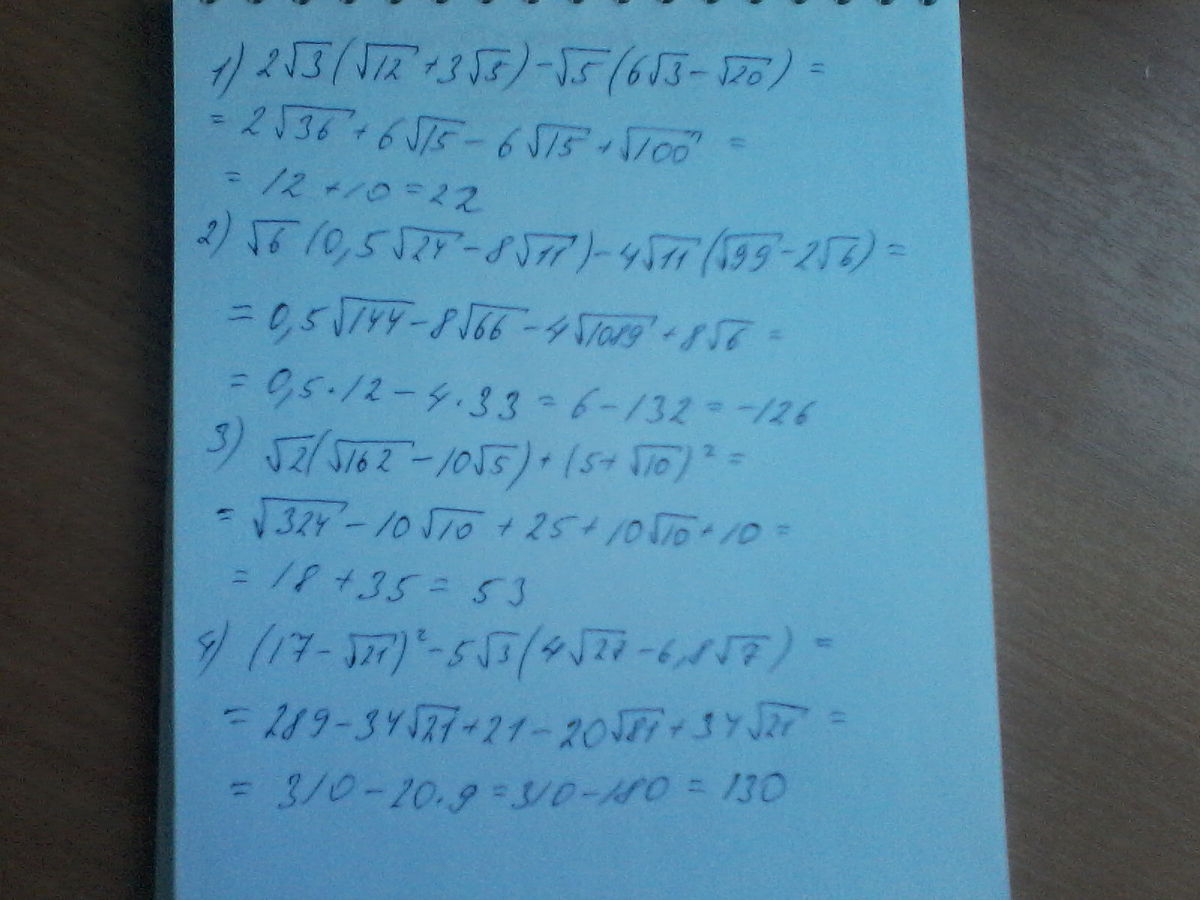 1) 2√3(√12+3√5)-√5(6√3-√20)=
=2√36+6√15-6√15+√100=
=12+10=22
2) √6(0,5√24-8√11)-4√11(√99-2√6)=
=0,5√144-8√66-4√1089+8√6=
=0,5·12-4·33=6-132=-126
3) √2(√162-10√5)+(5+√10)²=
=√324-10√10+25+10√10+10=
=18+35=53
4) (17-√21)²-5√3(4√27-6,8√7)=
=289-34√21+21-20√81+34√21=
=310-20·9=310-180=130